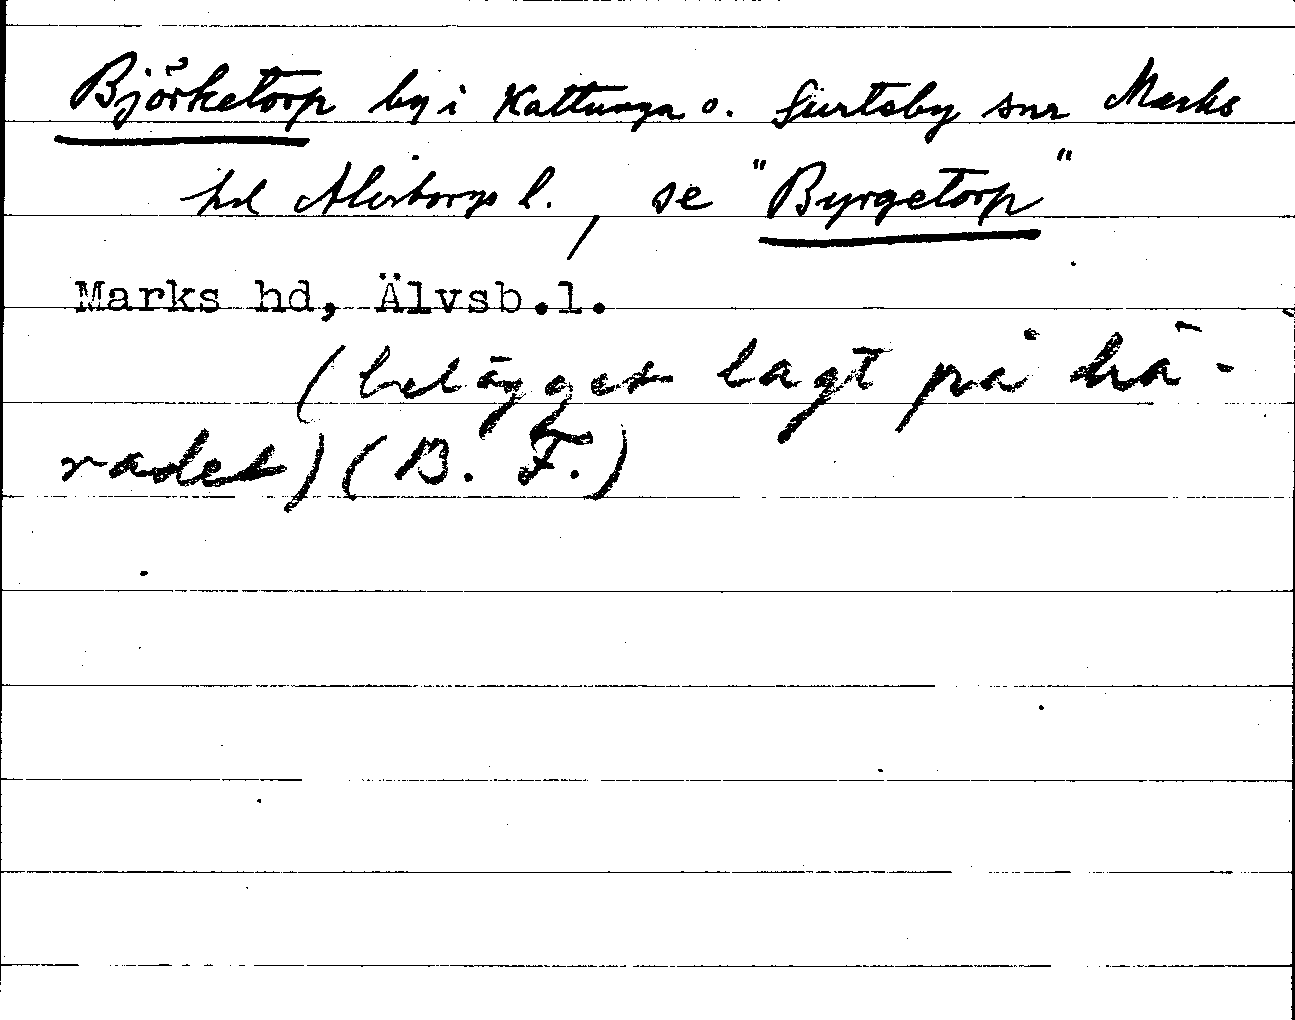 Björketorp by i Kattunga o. Surteby snr Marks
hd Älvsborgs l., se "Byrgetorp"
Marks hd, Älvsb.l.
(belägget lagt på hä-
radet) (B. F.)